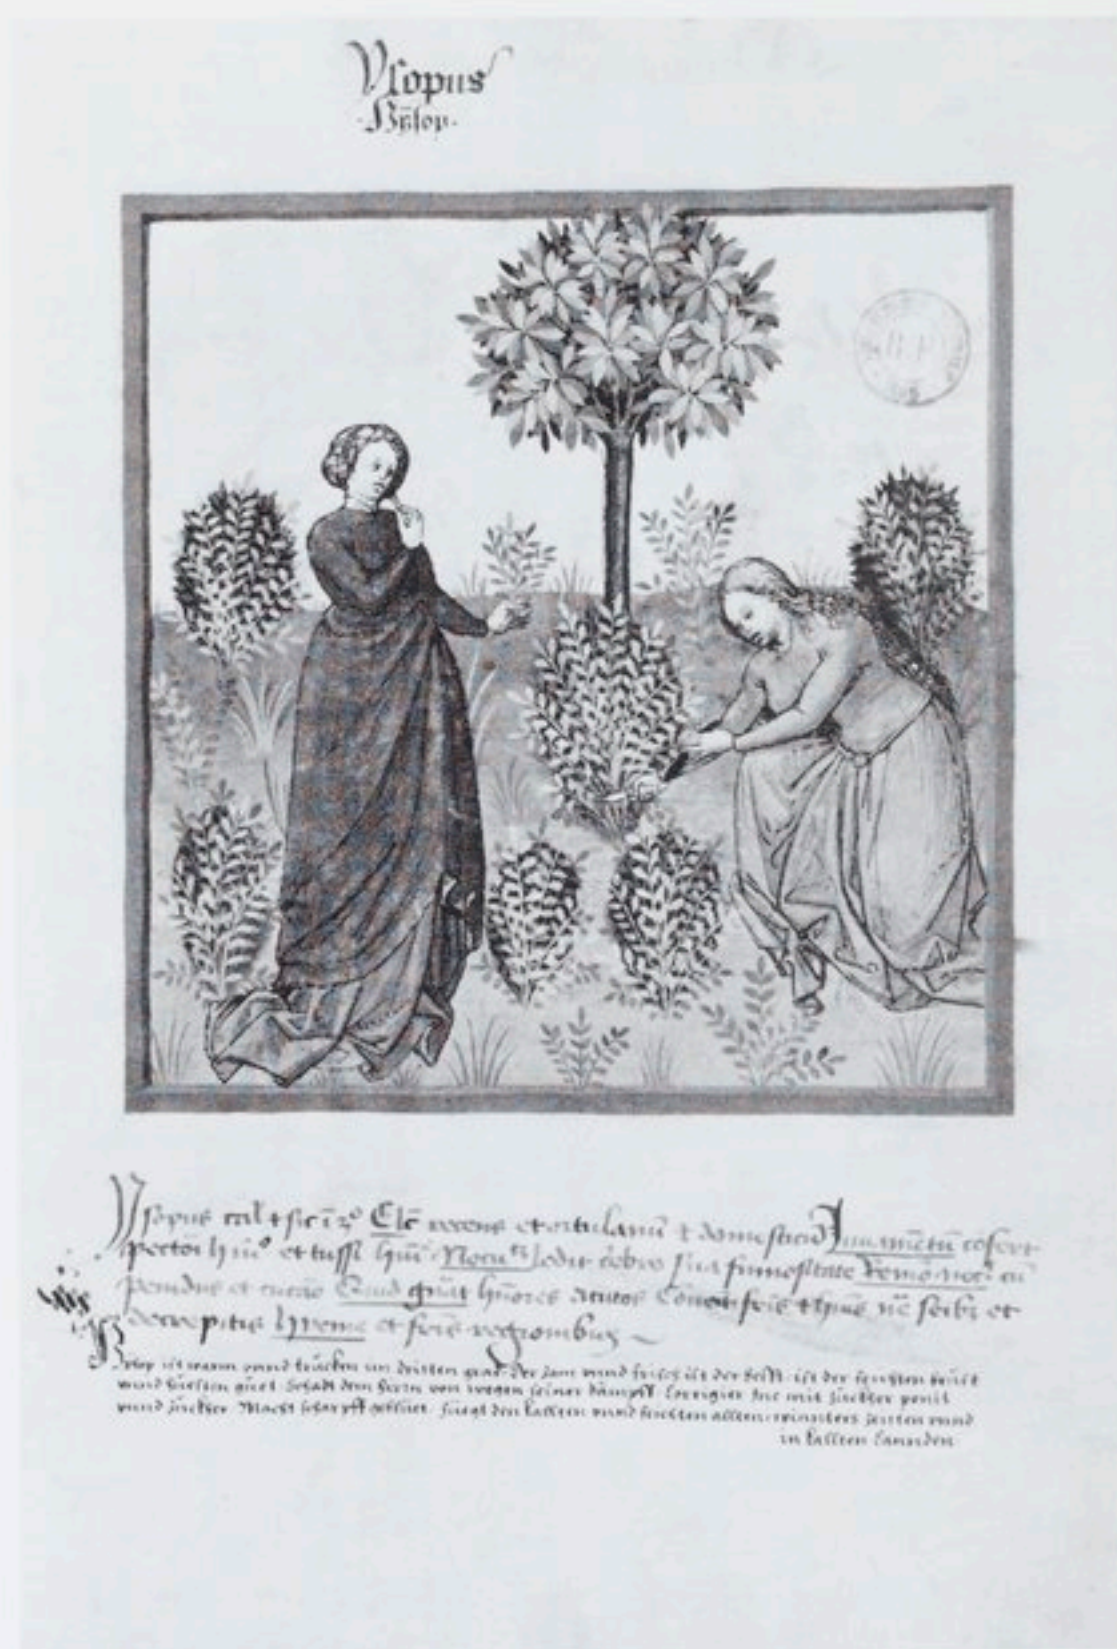 Ysopus
·Ysop·
Ysopus cał ⁊ sic̄ ī 3º Elc̄ recens et ortulanū ⁊ domesticū Juuamētū cōfert
pectori et tussi Nocum̄ ledit cerebro sua fumositate Remō noci cū
penidus et zucaro Quid gn̄at hūores acutos Conueīt fris ⁊ hūis senibꝫ et
decrepitis hyeme et fris regionibus
Ysop ist warm vnnd trucken im dritten grad Der zam vnnd frisch ist der best ist der feuchten brust
vnnd huesten guet Schadt dem hirrn von wegen seiner dämpff Corrigier Inc mit zucker penit
vnnd zucker Macht scharpff gebluet fuegt den kallten vnnd feuchten allten winnters zeitten vnnd
in kallten Lannden